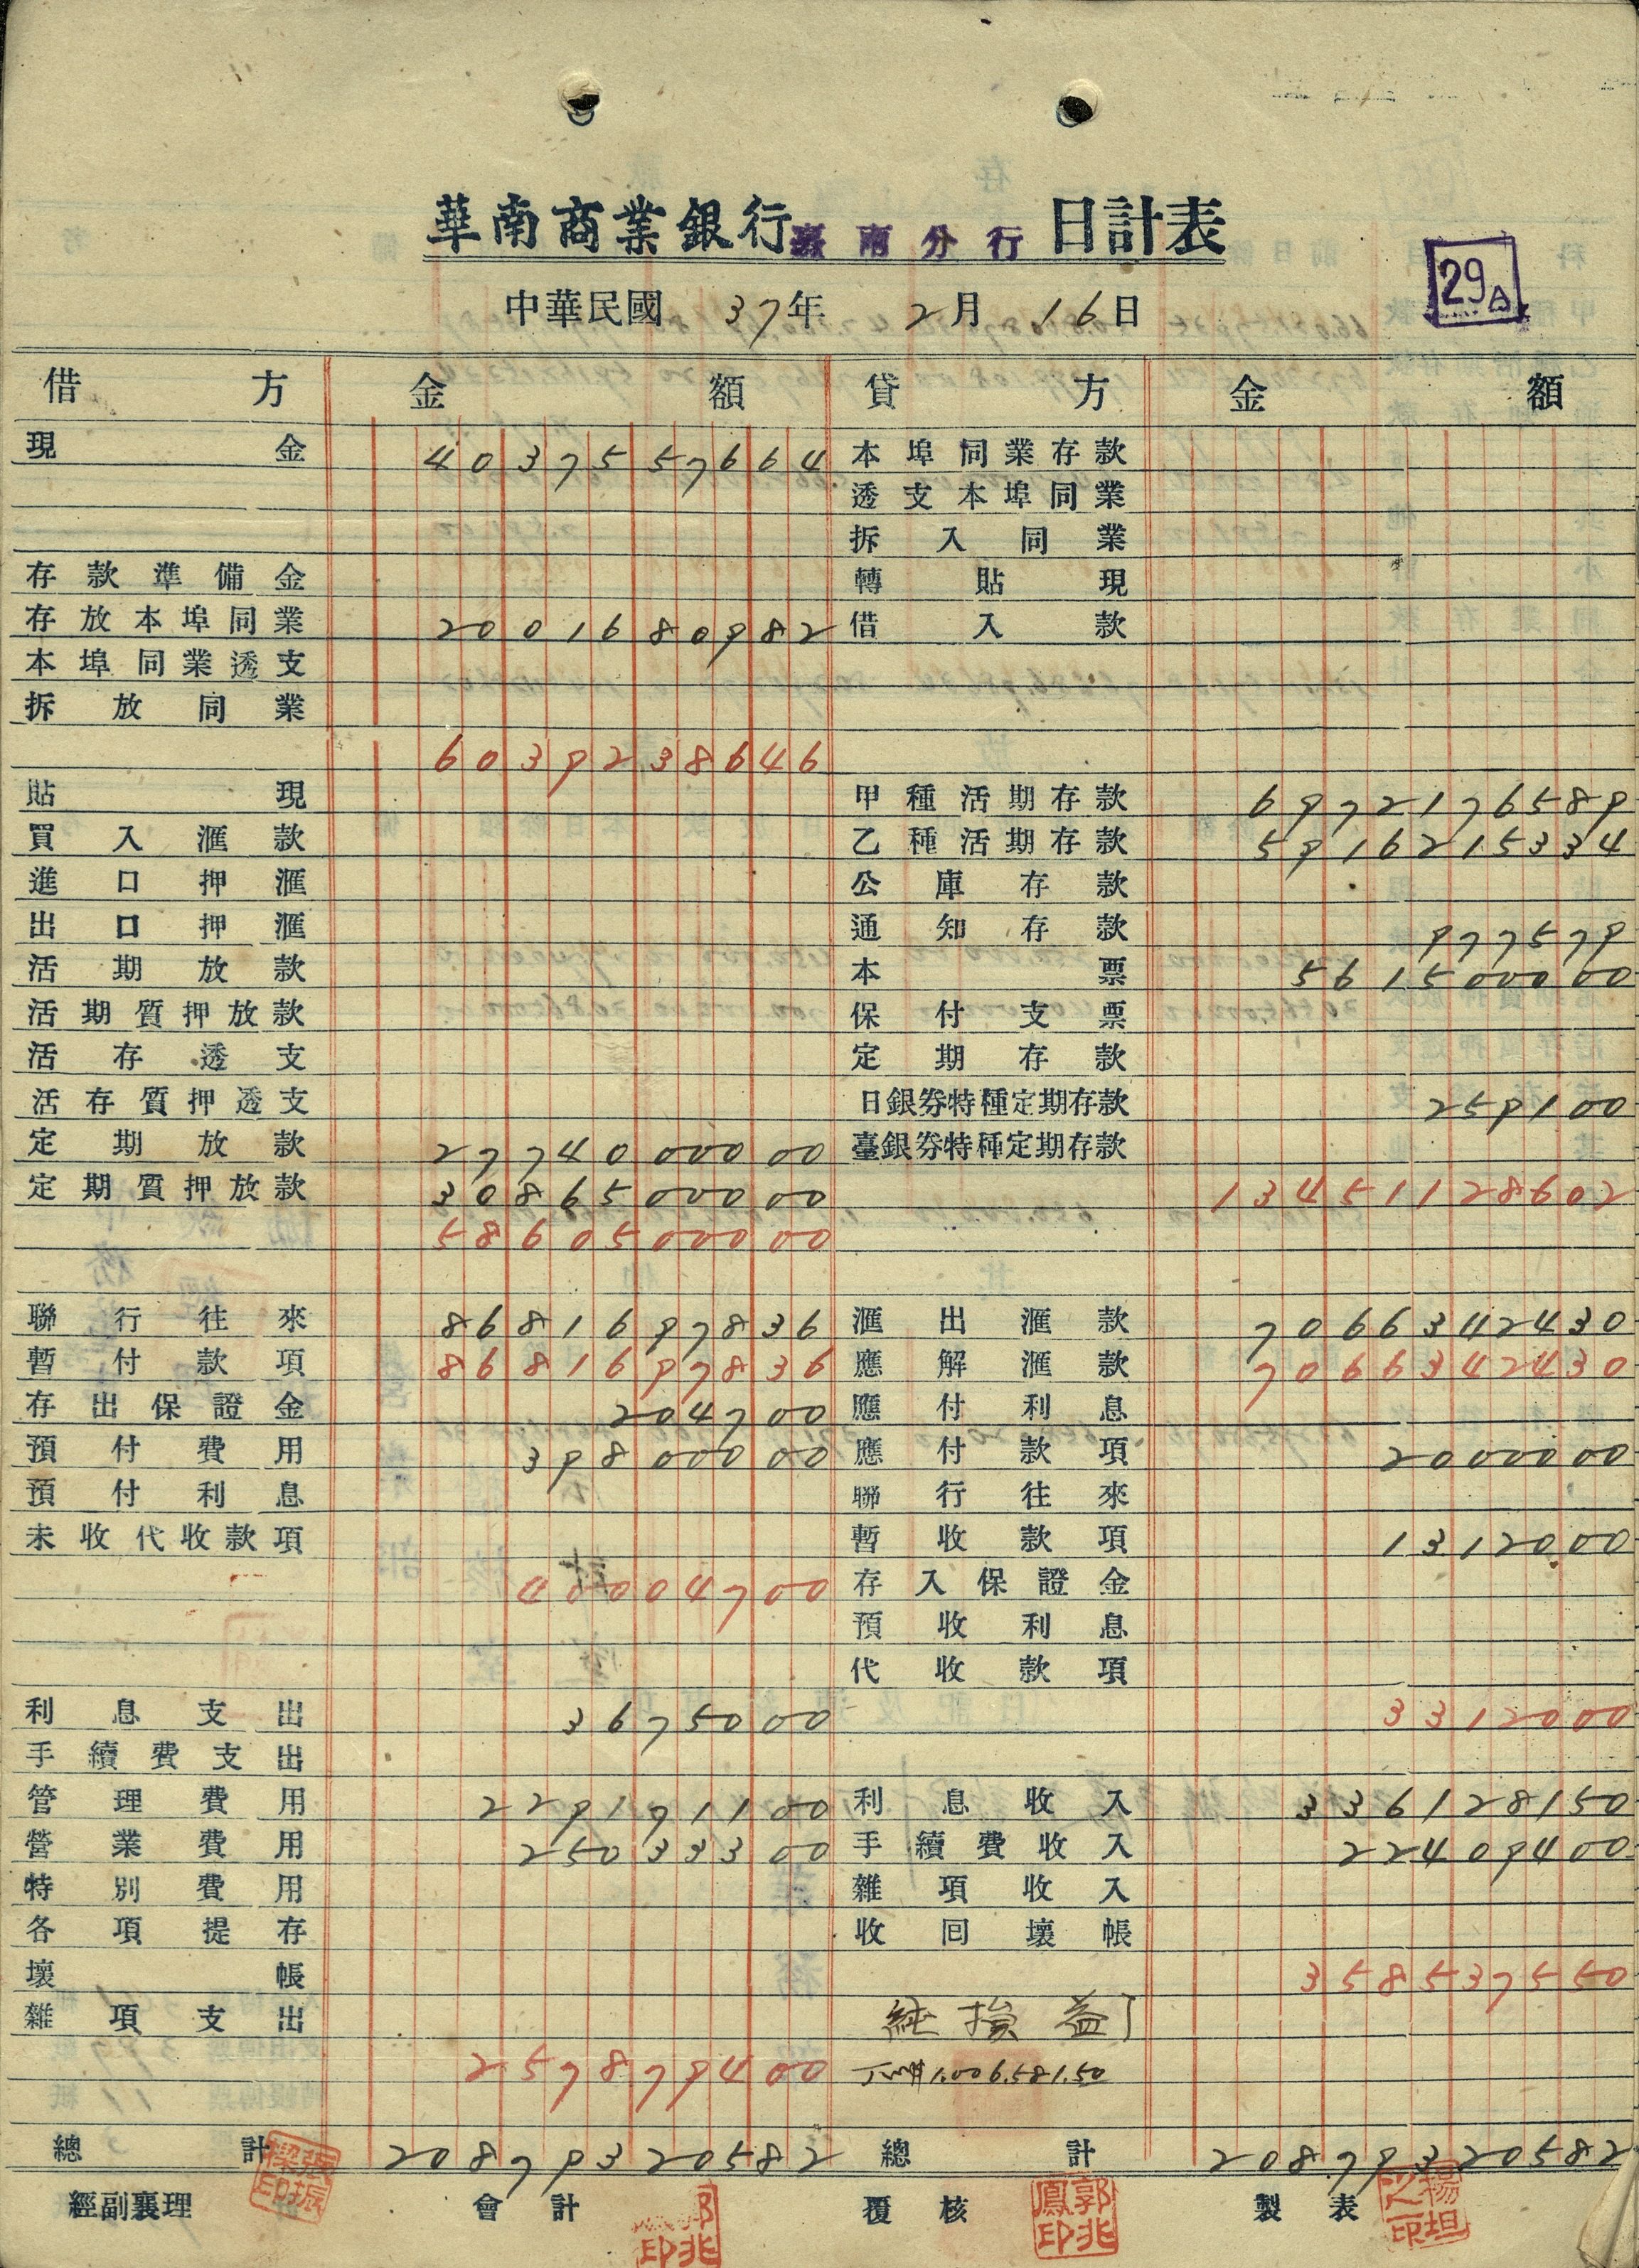 華南商業銀行臺南分行日計表
29A
中華民國 37年 2月 16日
借方 金額 貸方 金額
現金 4037557664 本埠同業存款
透支本埠同業
拆入同業
存款準備金 轉貼現
存放本埠同業 2001680982 借入款
本埠同業透支
拆放同業
6039238646
貼現 甲種活期存款 6972176589
買入滙款 乙種活期存款 5916215334
進口押滙 公庫存款
出口押滙 通知存款 977579
活期放款 本票 561500000
活期質押放款 保付支票
活存透支 定期存款
活存質押透支 日銀券特種定期存款 259100
定期放款 2774000000 臺銀券特種定期存款
定期質押放款 3086500000 13451128602
5860500000
聯行往來 8681697836 滙出滙款 7066342430
暫付款項 8681697836 應解滙款 7066342430
存出保證金 204700 應付利息
預付費用 39800000 應付款項 2000000
預付利息 聯行往來
未收代收款項 暫收款項 1312000
40004700 存入保證金
預收利息
代收款項
利息支出 3675000 3312000
手續費支出
管理費用 229171100 利息收入 336128150
營業費用 25033300 手續費收入 22409400
特別費用 雜項收入
各項提存 收回壞帳
壞帳 358537550
雜項支出 純損益
257879400 1.006.581.50
總計 20879320582 總計 20879320582
經副襄理 會計 覆核 製表